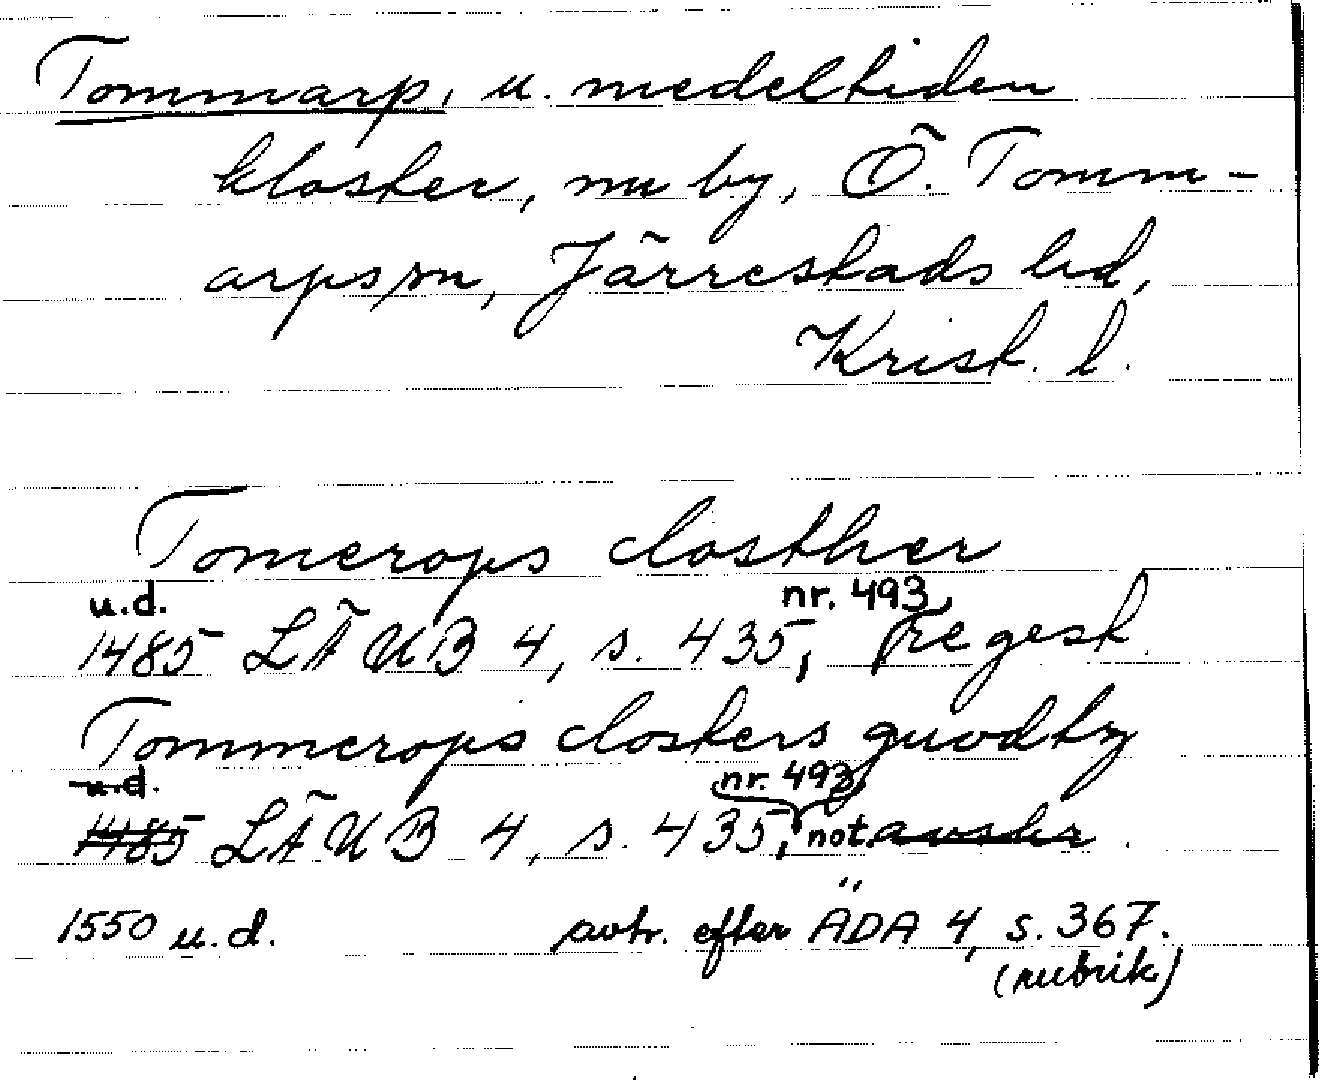 Tommarp, u. medeltiden
kloster, nu by, Ö. Tomm-
arps sn, Järrestads hd,
Krist. l.
Tomerops closther
u.d. nr. 493,
1485 LÄUB 4, s. 435, regest
Tommerops closters guodtz
u.d. nr. 493,
1485 LÄUB 4, s. 435, not. avskr.
1550 u.d. avtr. efter ÄDA 4, s. 367.
(rubrik)